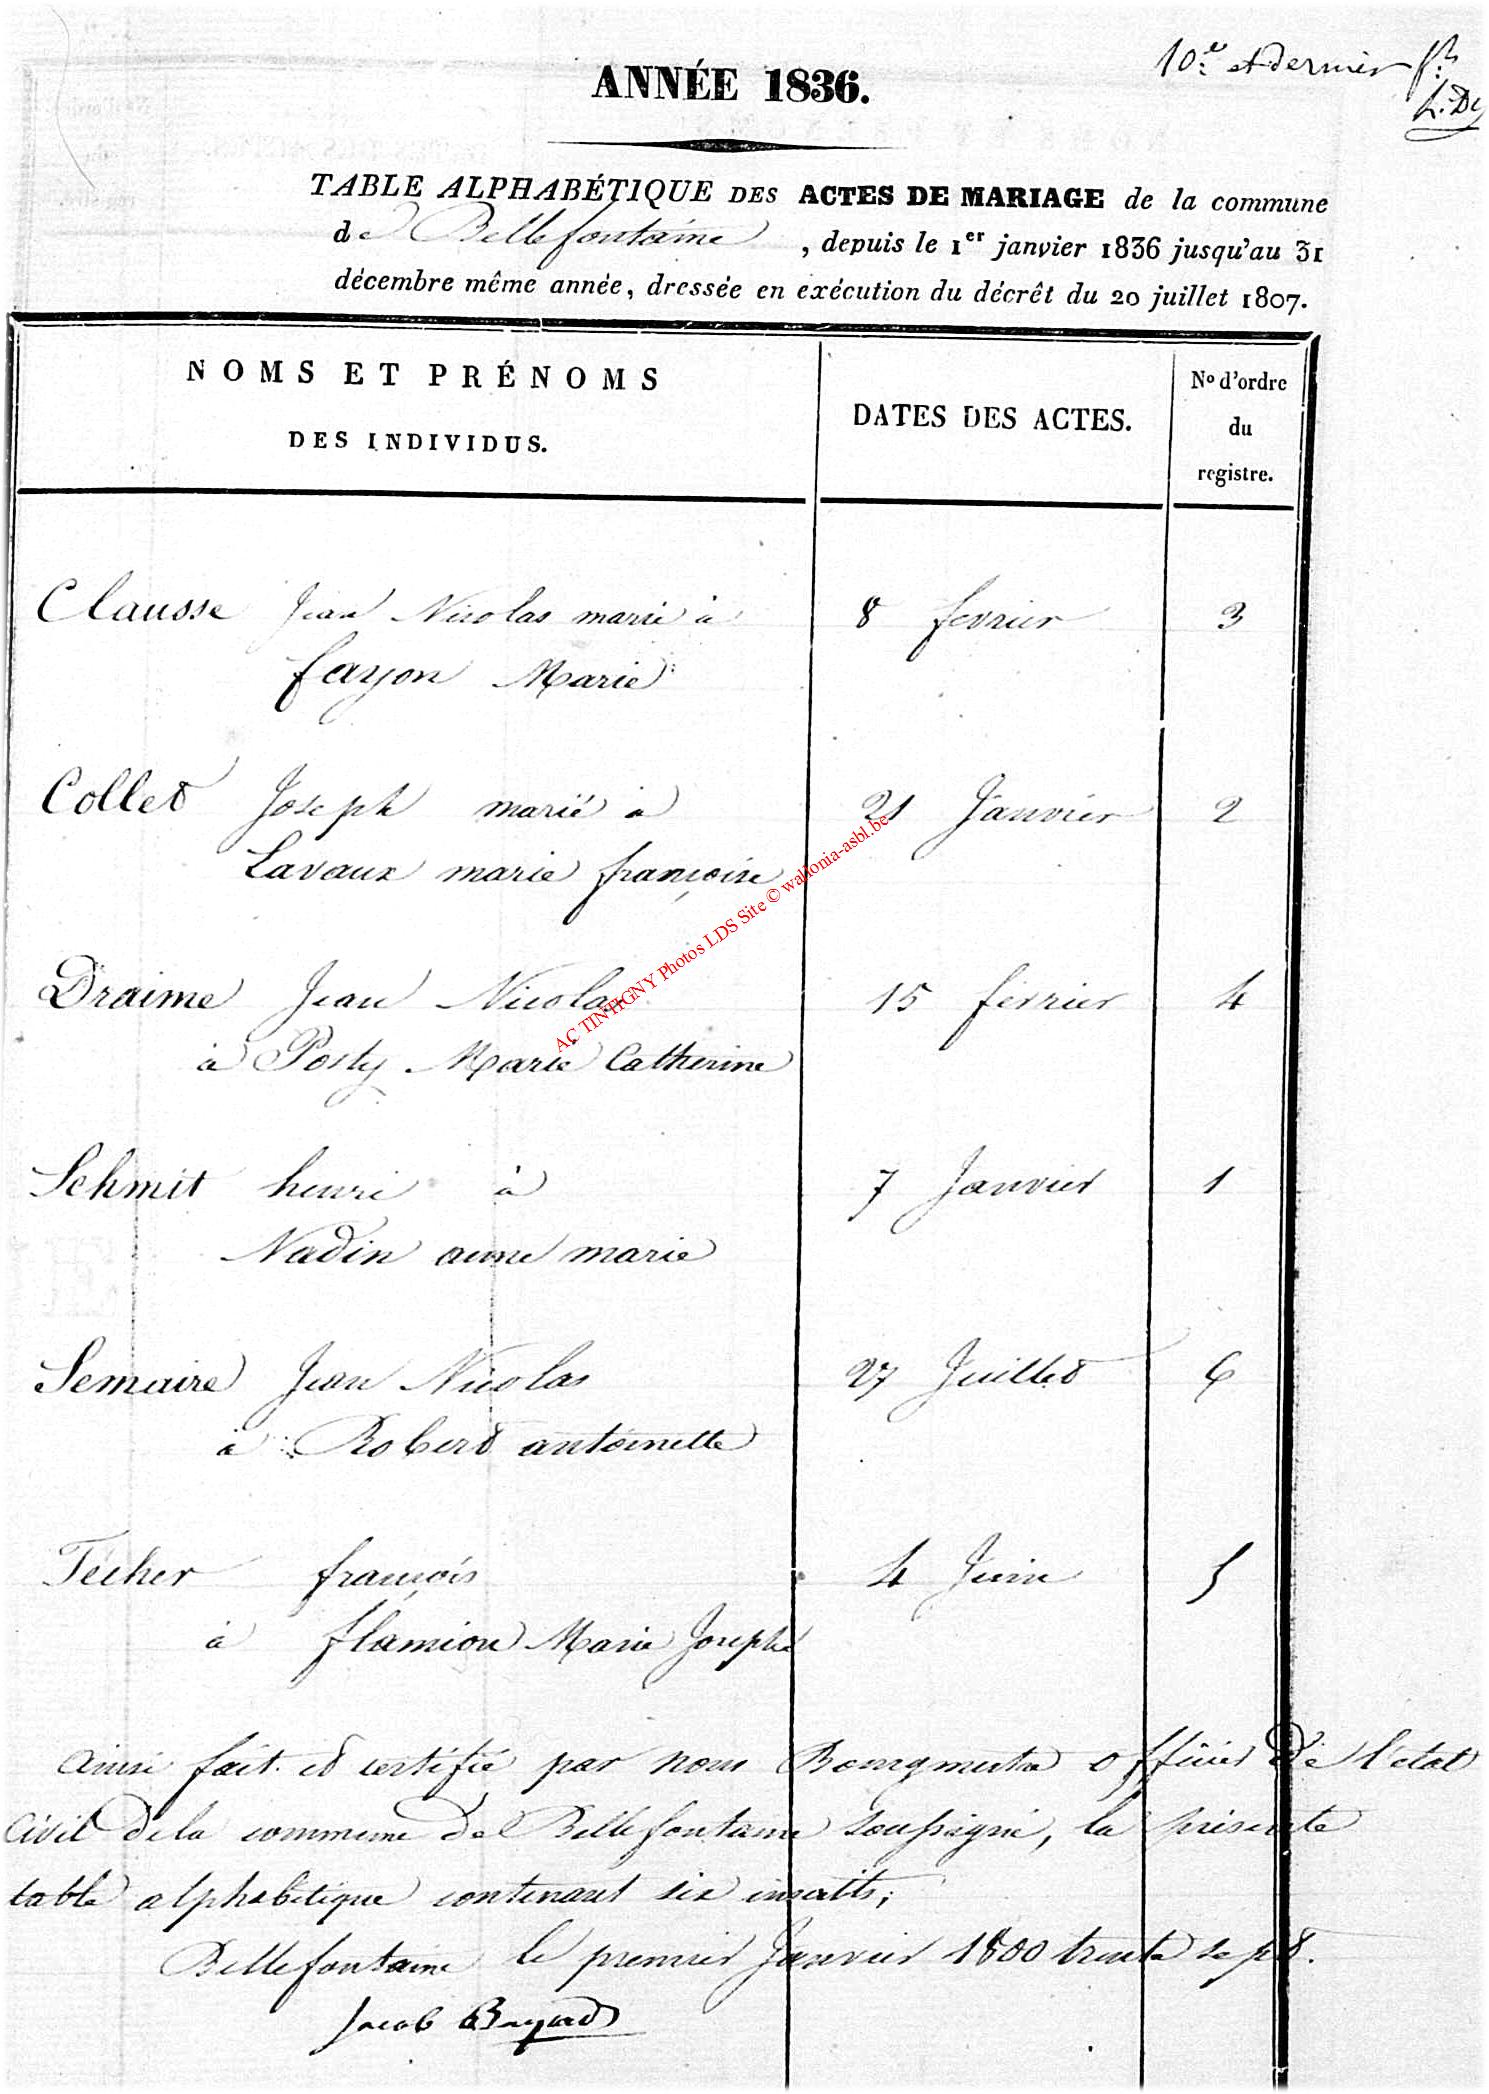 10e et dernier
ANNÉE 1836.
TABLE ALPHABÉTIQUE DES ACTES DE MARIAGE de la commune
de Bellefontaine, depuis le 1er janvier 1836 jusqu'au 31
décembre même année, dressée en exécution du décrêt du 20 juillet 1807.
NOMS ET PRÉNOMS
DES INDIVIDUS.
DATES DES ACTES.
No d'ordre
du
registre.
Clausse Jean Nicolas marié à 8 fevrier 3
fayon Marie
Collet Joseph marié a 21 Janvier 2
Lavaux marie françoise
Draime Jean Nicolas 15 fevrier 4
a Posty Marie Catherine
Schmit henri à 7 Janvier 1
Nadin anne marie
Semaire Jean Nicolas 27 Juillet 6
à Robert antoinette
Techer françois 4 Juin 5
à flamion Marie Josephe
ainsi fait et certifié par nous Bourgmestre officier de l'etat
civil de la commune de Bellefontaine soussigné, la présente
table alphabétique contenant six inscrits;
Bellefontaine le premier Janvier 1800 trente sept.
Jacob Bayard
AC TINTIGNY Photos LDS Site © wallonia-asbl.be